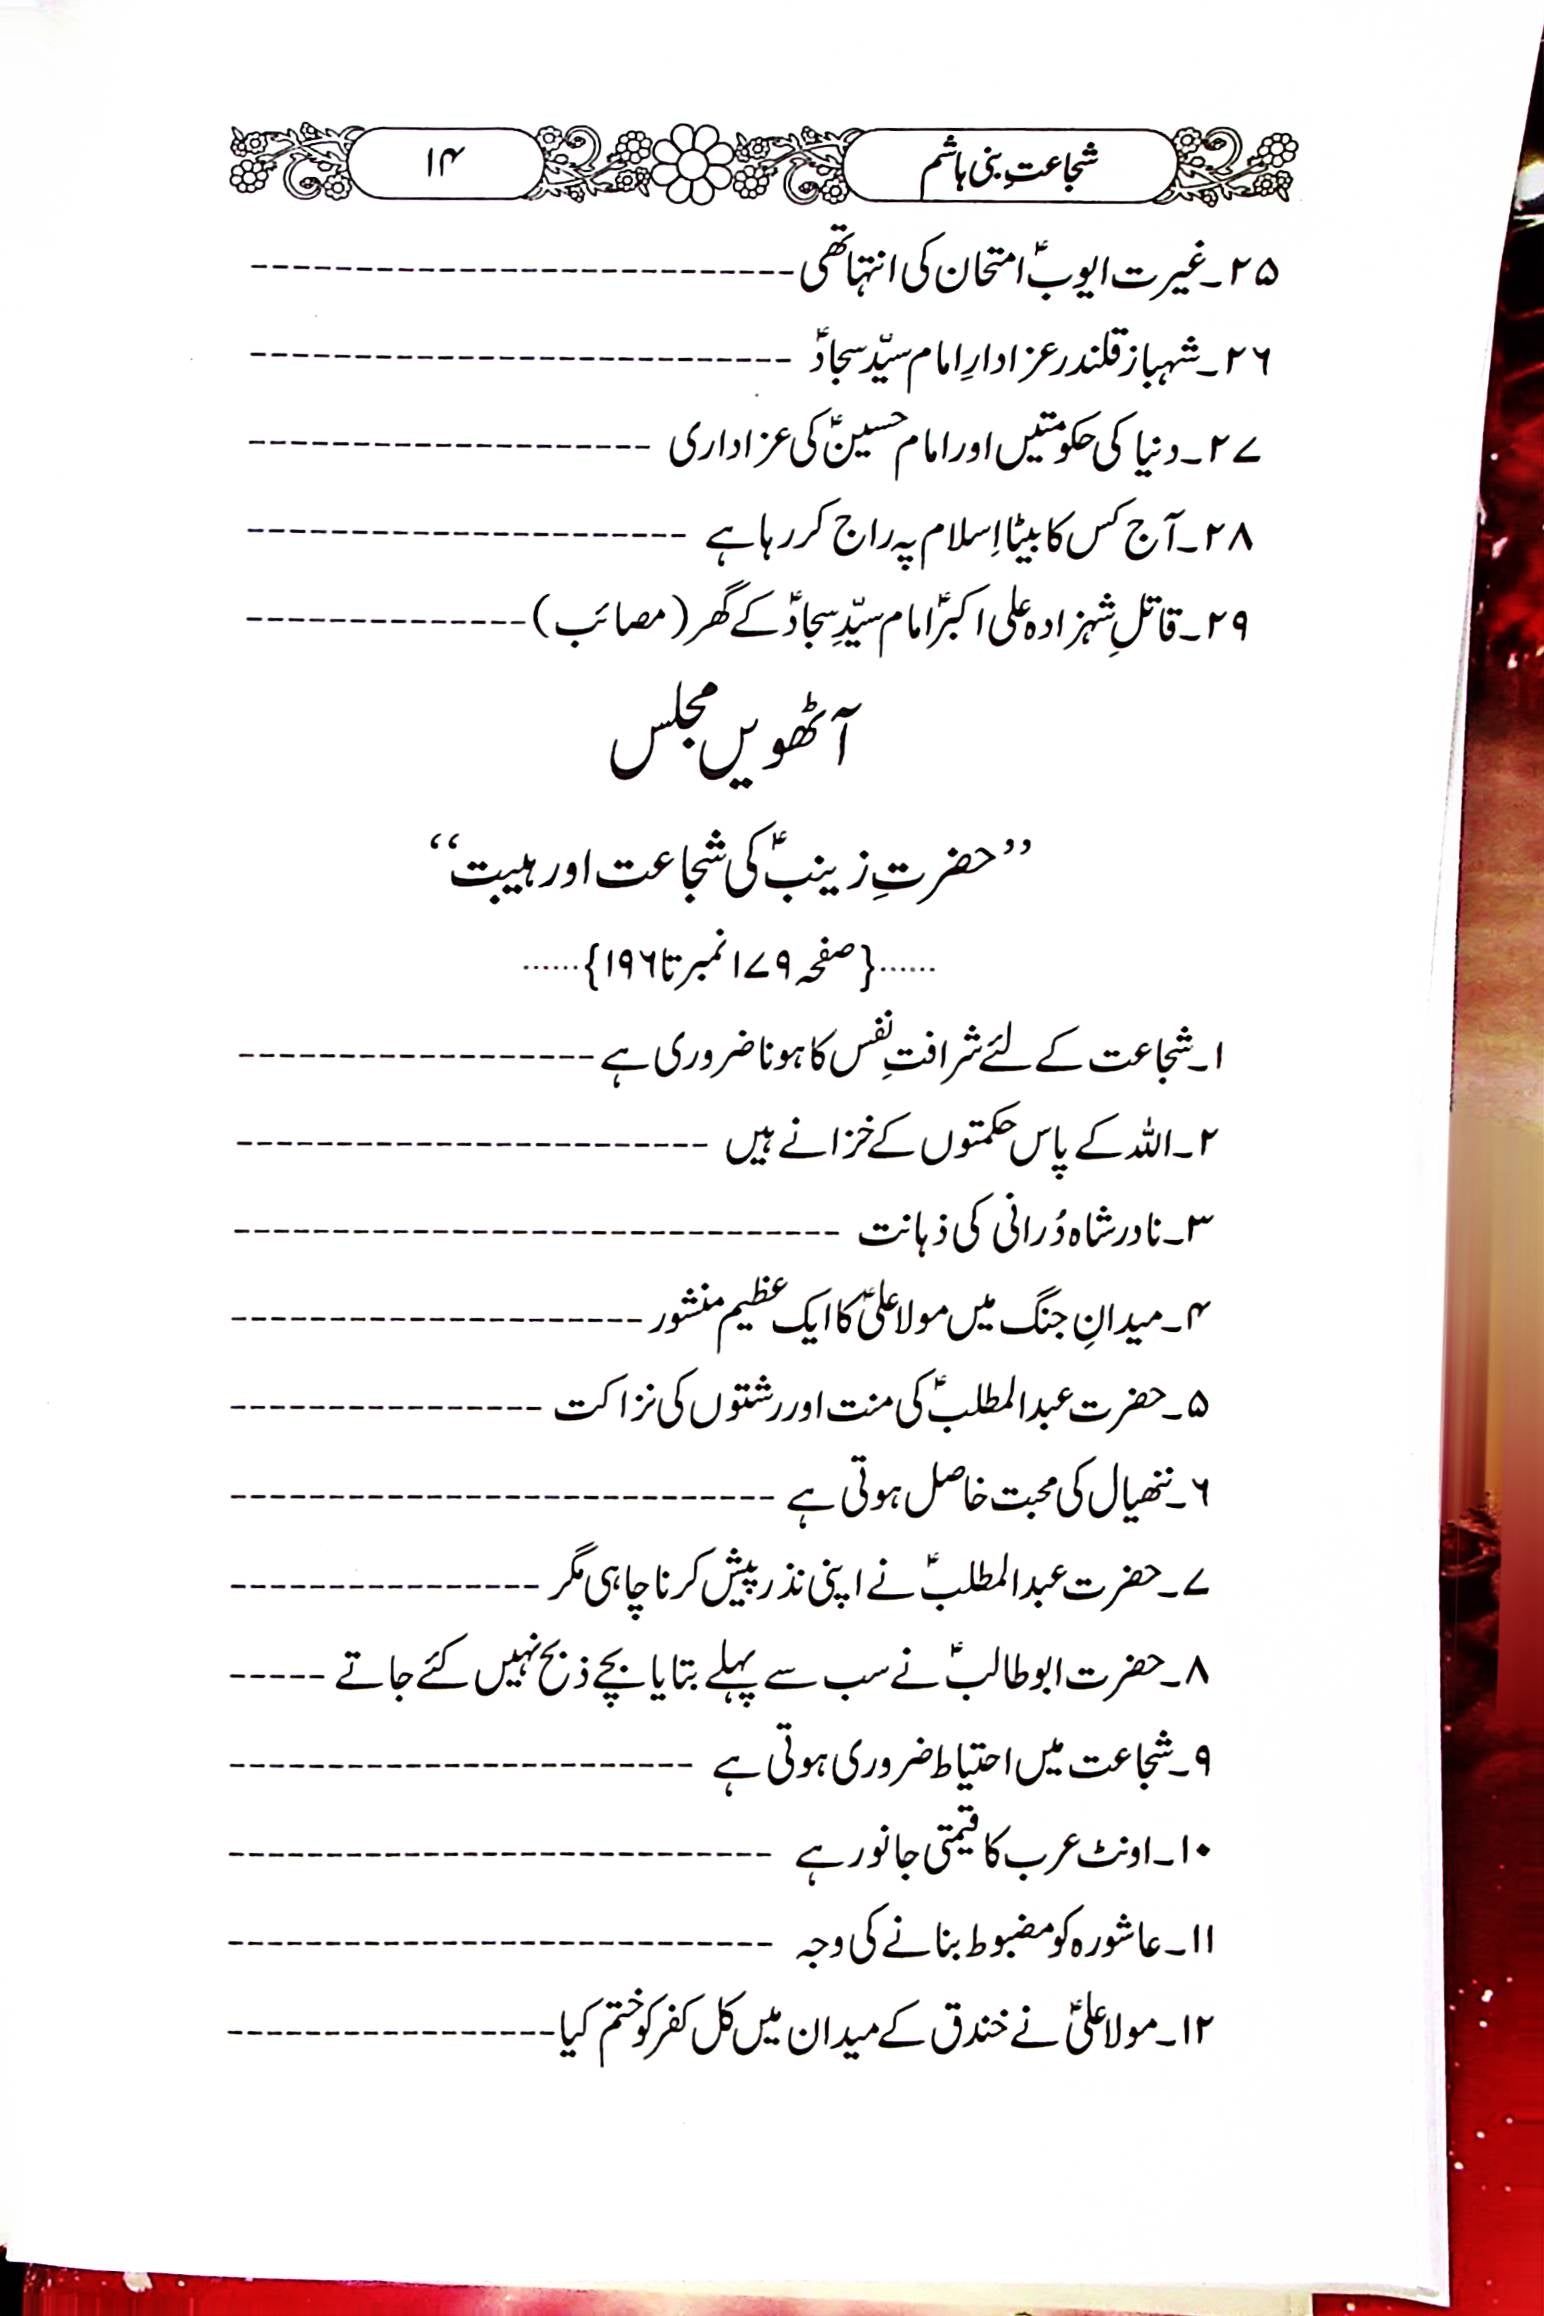 شجاعتِ بنی ہاشم ۱۴
۲۵۔غیرت ایوبؑ امتحان کی انتہا تھی ---------------------------
۲۶۔شہباز قلندر عزادارِ امام سیّد سجادؑ ---------------------------
۲۷۔دنیا کی حکومتیں اور امام حسینؑ کی عزاداری --------------------
۲۸۔آج کس کا بیٹا اِسلام پہ راج کر رہا ہے ----------------------
۲۹۔قاتلِ شہزادہ علی اکبرؑ امام سیّدِ سجادؑ کے گھر (مصائب) --------------
آٹھویں مجلس
’’حضرتِ زینبؑ کی شجاعت اور ہیبت‘‘
......{صفحہ ۱۷۹ نمبر تا ۱۹۶}......
۱۔شجاعت کے لئے شرافتِ نفس کا ہونا ضروری ہے ------------------
۲۔اللہ کے پاس حکمتوں کے خزانے ہیں ------------------------
۳۔نادر شاہ دُرانی کی ذہانت -------------------------------
۴۔میدانِ جنگ میں مولا علیؑ کا ایک عظیم منشور ---------------------
۵۔حضرت عبدالمطلبؑ کی منت اور رشتوں کی نزاکت ----------------
۶۔ننھیال کی محبت خاصل ہوتی ہے ----------------------------
۷۔حضرت عبدالمطلبؑ نے اپنی نذر پیش کرنا چاہی مگر ----------------
۸۔حضرت ابوطالبؑ نے سب سے پہلے بتایا بچے ذبح نہیں کئے جاتے -----
۹۔شجاعت میں احتیاط ضروری ہوتی ہے ------------------------
۱۰۔اونٹ عرب کا قیمتی جانور ہے ----------------------------
۱۱۔عاشورہ کو مضبوط بنانے کی وجہ ----------------------------
۱۲۔مولا علیؑ نے خندق کے میدان میں کل کفر کو ختم کیا -----------------